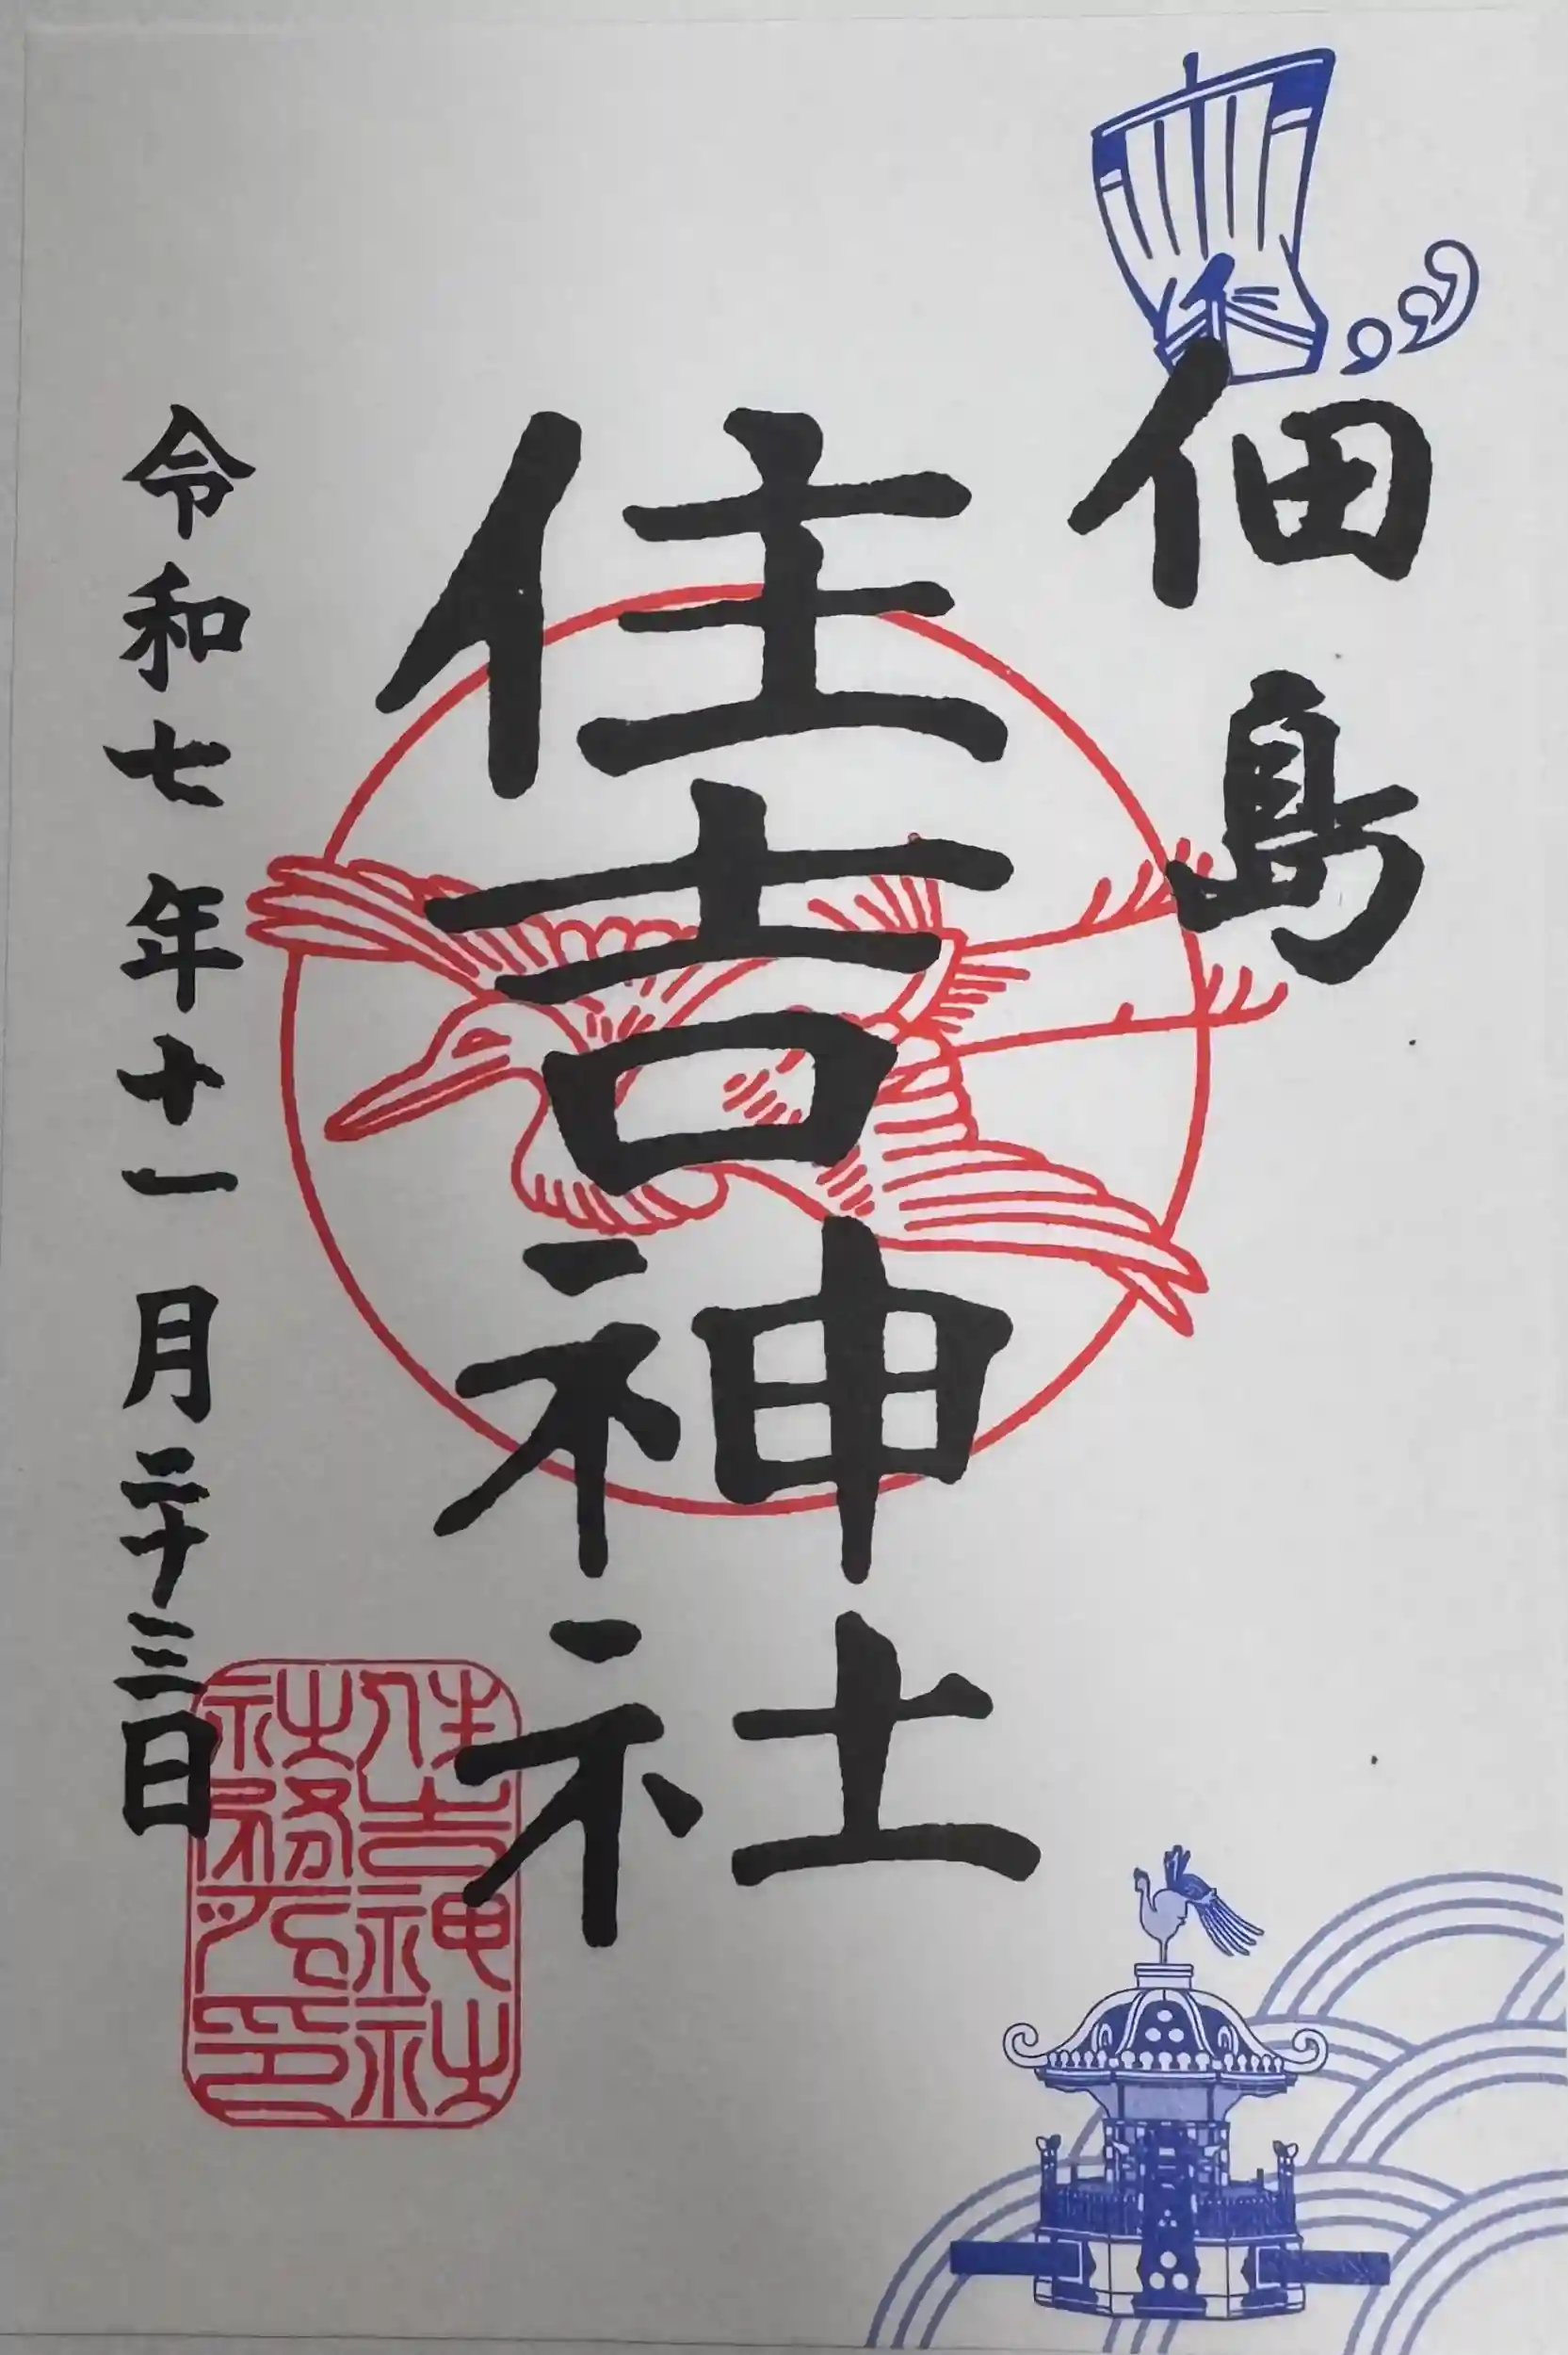 佃島
住吉神社
令和七年十一月二十三日
住吉神社
社務所印